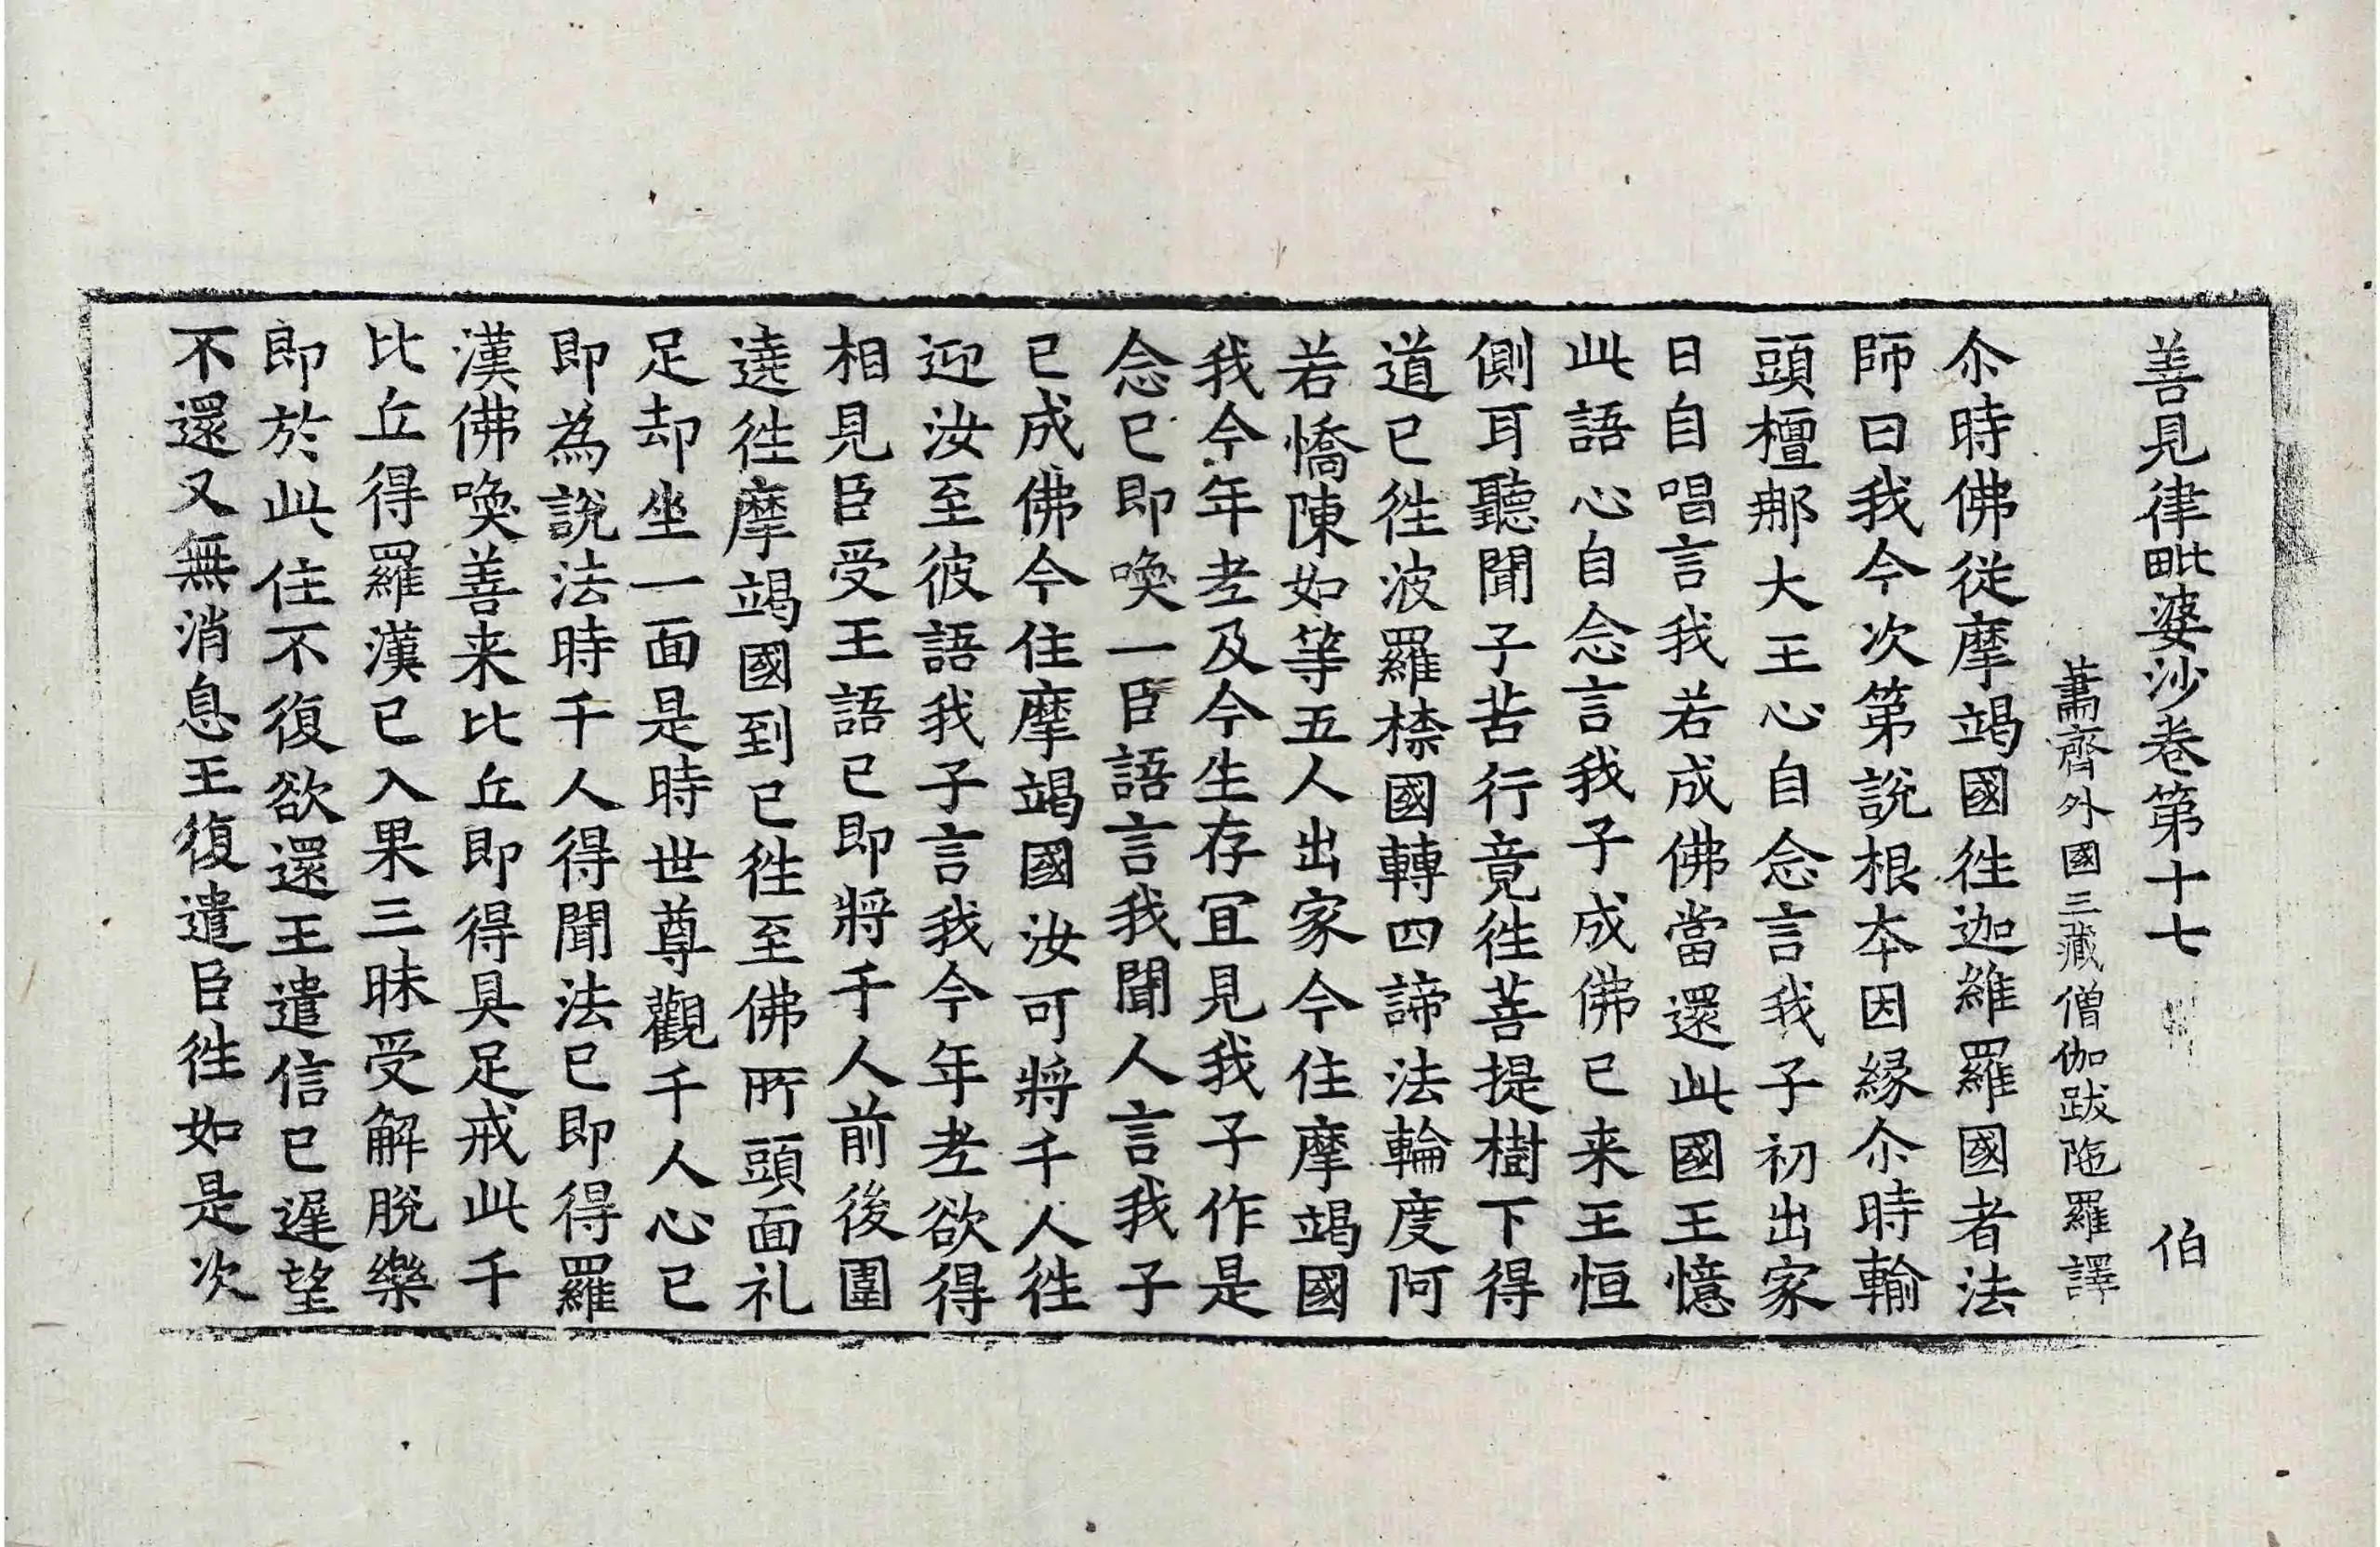 善見律毗婆沙卷第十七 伯
蕭齊外國三藏僧伽跋陁羅譯
尒時佛從摩竭國徃迦維羅國者法
師曰我今次第說根夲因緣尒時輸
頭檀䣊大王心自念言我子初出家
日自唱言我若成佛當還此國王憶
此語心自念言我子成佛已来王恒
側耳聽聞子苦行竟徃菩提樹下得
道已徃波羅㮈國轉四諦法輪度阿
若憍陳如等五人出家今住摩竭國
我今年耂及今生存冝見我子作是
念已即喚一臣語言我聞人言我子
已成佛今住摩竭國汝可將千人徃
迎汝至彼語我子言我今年耂欲得
相見臣受王語已即將千人前後圍
遶徃摩竭國到已徃至佛所頭面礼
足却坐一面是時世尊觀千人心已
即為說法時千人得聞法已即得羅
漢佛喚善来比丘即得具足戒此千
比丘得羅漢已入果三昧受解脫樂
即於此住不復欲還王遣信已遲望
不還又無消息王復遣臣徃如是次